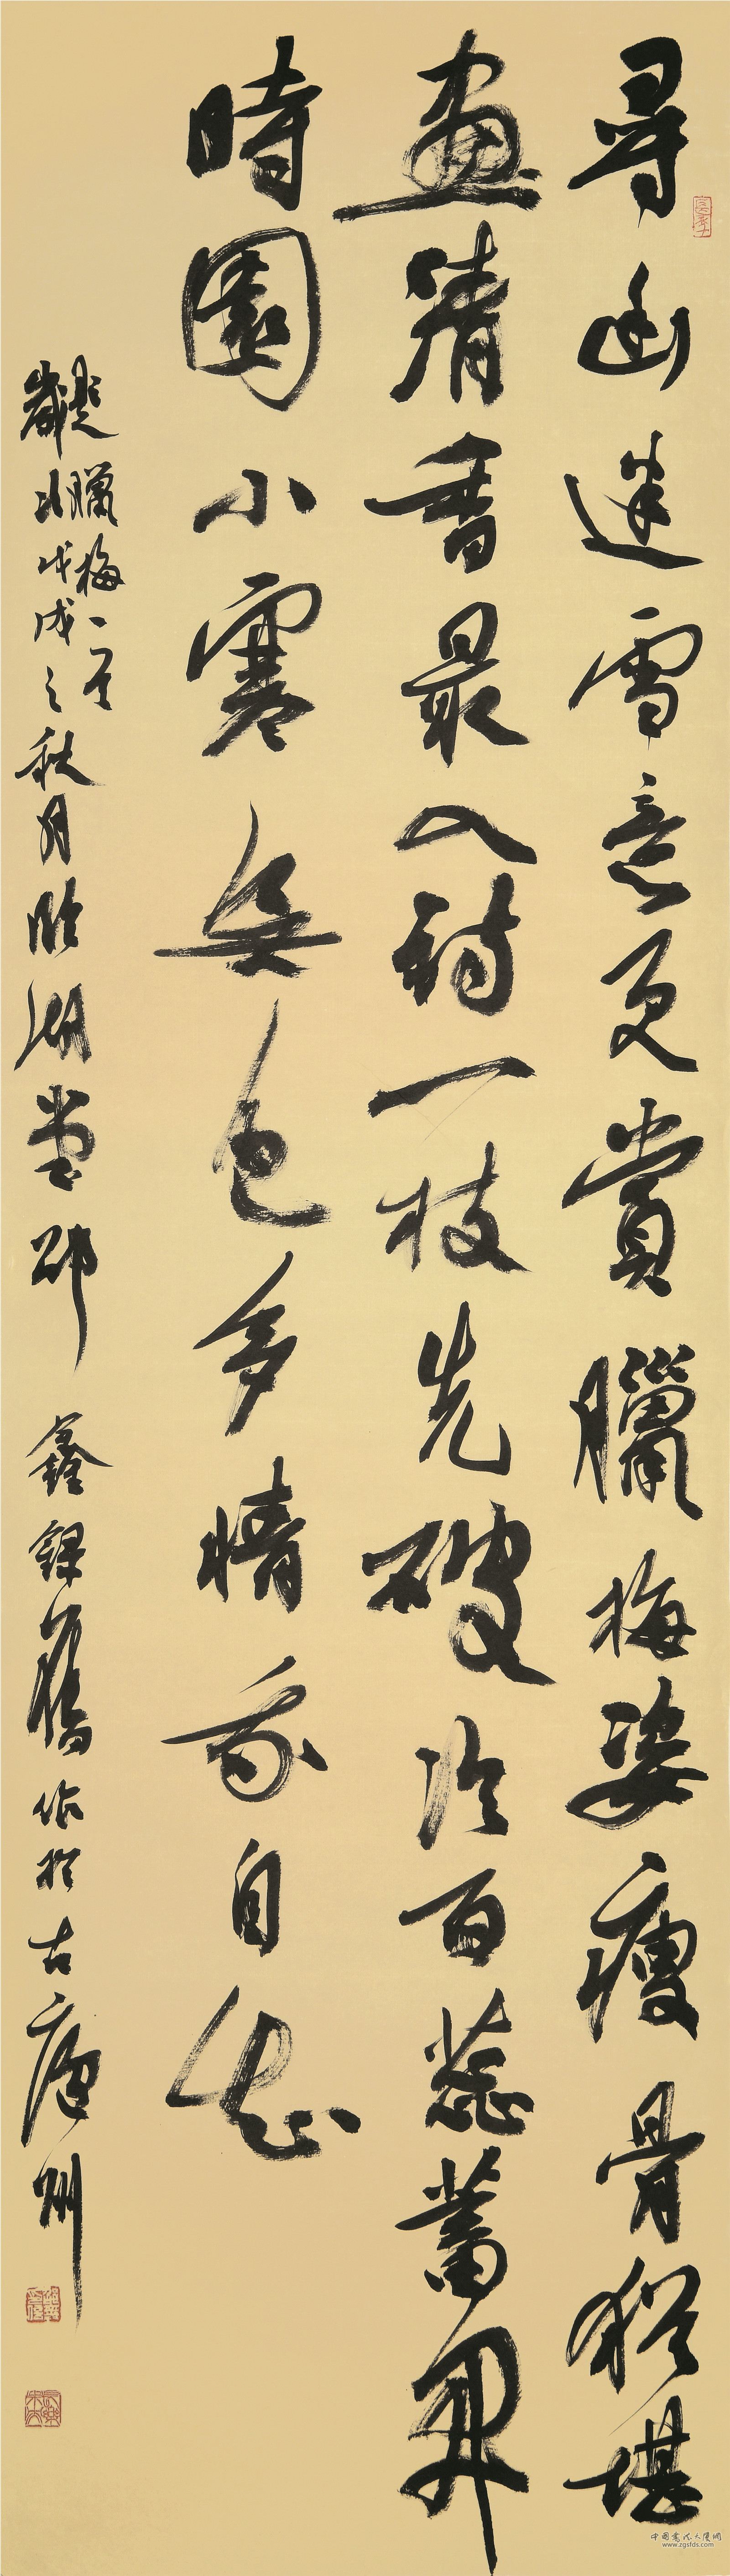 尋幽迷雪意更賞臘梅姿瘦骨猶堪
畫清香最入詩一枝先破冷百蕊蓄開
時園小寒無色多情我自知
題臘梅一首
歲次戊戌之秋月湖堂邵鑫錄舊作於古州
中國書法大師網
www.zgsfds.com